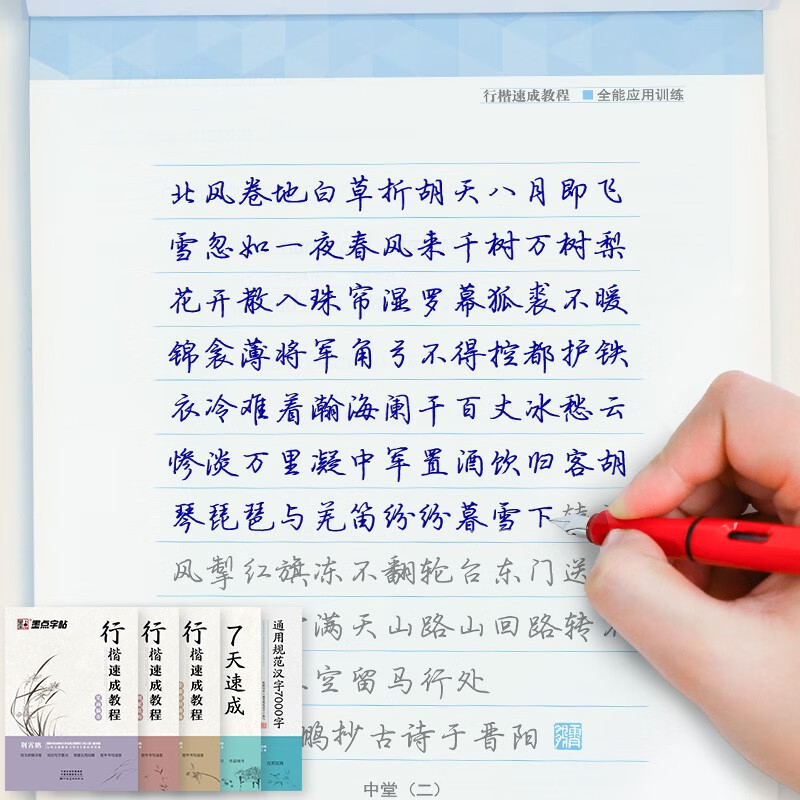 行楷速成教程 全能应用训练
北风卷地白草折胡天八月即飞
雪忽如一夜春风来千树万树梨
花开散入珠帘湿罗幕狐裘不暖
锦衾薄将军角弓不得控都护铁
衣冷难着瀚海阑干百丈冰愁云
惨淡万里凝中军置酒饮归客胡
琴琵琶与羌笛纷纷暮雪下
风掣红旗冻不翻轮台东门送
满天山路山回路转不
空留马行处
鹏抄古诗于晋阳
中堂（二）
墨点字帖
行楷速成教程
荆霄鹏
行楷速成教程
行楷速成教程
7天速成
通用规范汉字7000字